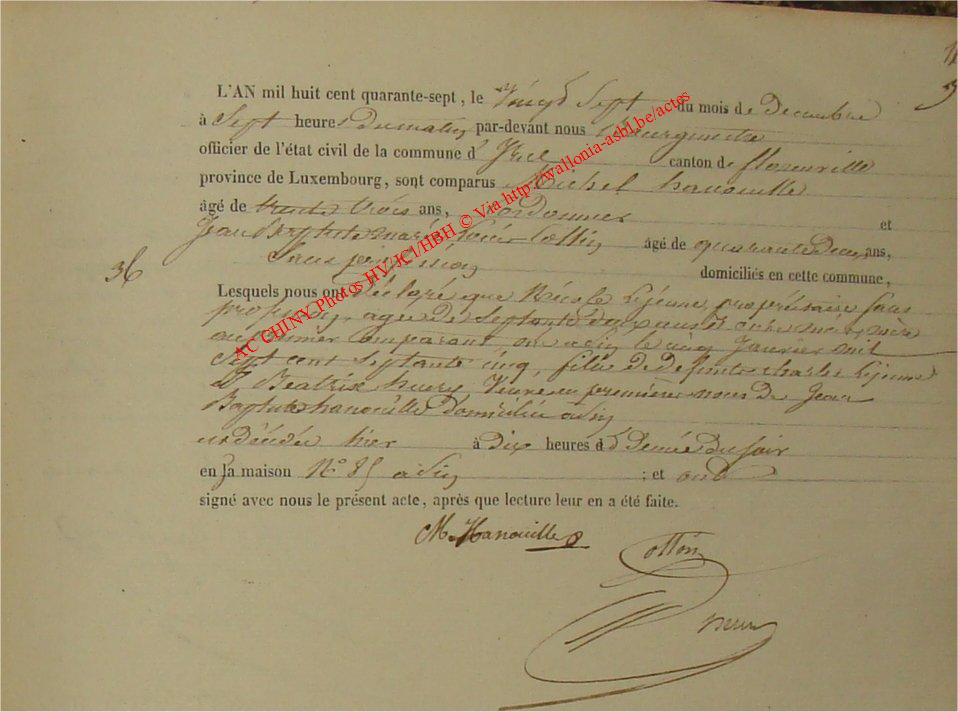 L'AN mil huit cent quarante-sept, le Vingt Sept du mois de Decembre
à Sept heures du matin par-devant nous Bourgmestre
officier de l'état civil de la commune d' canton de florenville
province de Luxembourg, sont comparus Michel hanouille
âgé de trente trois ans, Cordonnier et
Jean Baptiste marie Collin âgé de quarante deux ans,
Sans profession domiciliés en cette commune,
36
Lesquels nous ont déclaré que Nicole Lejeune, propriétaire sans
profession, agée de Septante deux ans et onze mois, mère
au premier comparant née a le cinq Janvier mil
Sept cent septante cinq, fille de defunts charles Lejeune
et Beatrix huery, Veuve en première noces de Jean
Baptiste hanouille domiciliée
est décédée hier à Dix heures d demie du soir
en sa maison N° 85 a ; et ont
signé avec nous le présent acte, après que lecture leur en a été faite.
M. Hanouille
AC CHINY Photos HV/JCI/HBH © Via http://wallonia-asbl.be/actes